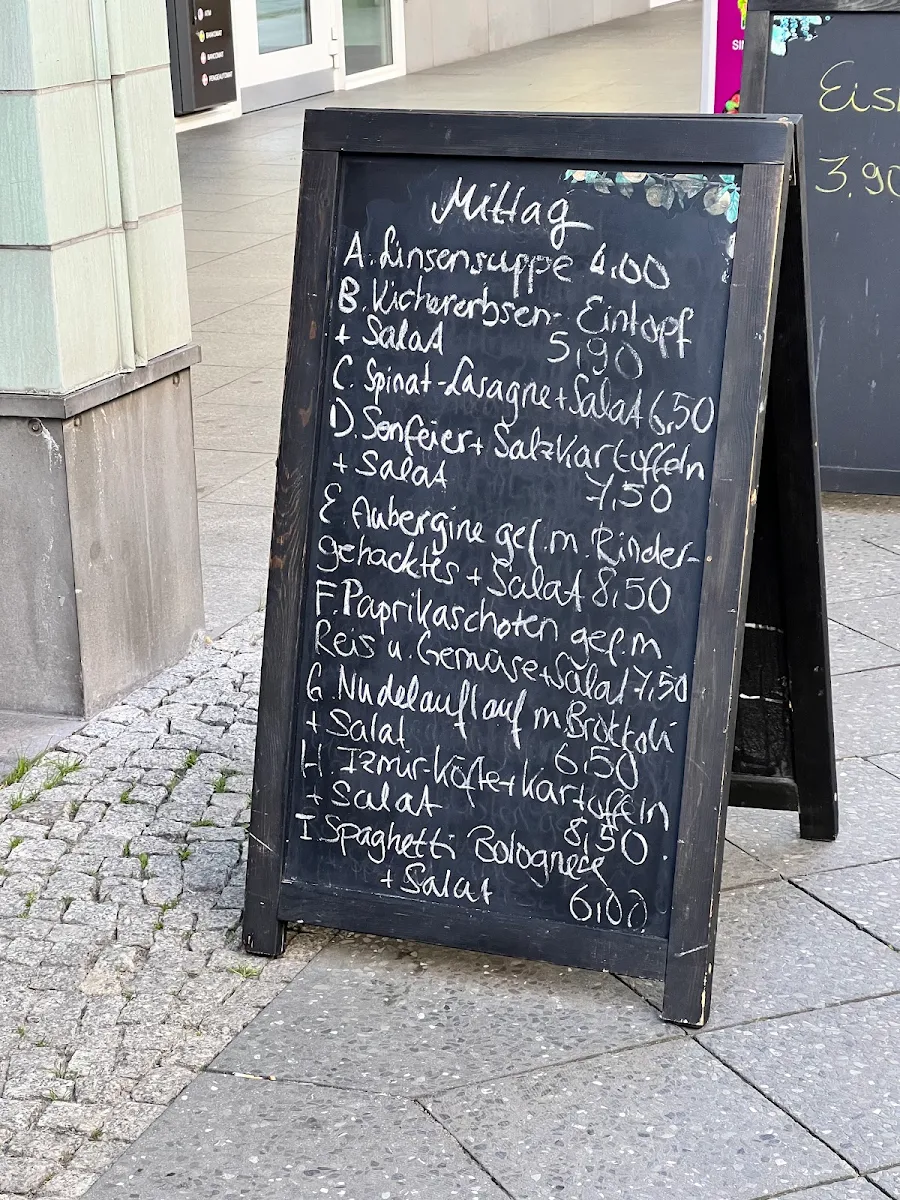 ATM
BANKOMAT
BANCOMAT
PENGEAUTOMAT
SI
Eis
3,90
Mittag
A. Linsensuppe 4,00
B. Kichererbsen- Eintopf
+ Salat 5,90
C. Spinat-Lasagne + Salat 6,50
D. Senfeier + Salzkartoffeln
+ Salat 7,50
E Aubergine gef. m. Rinder-
gehacktes + Salat 8,50
F. Paprikaschoten gef. m
Reis u. Gemüse + Salat 7,50
G. Nudelauflauf m Brokkoli
+ Salat 6,50
H. Izmir-Köfte + Kartoffeln
+ Salat 8,50
I. Spaghetti Bolognece
+ Salat 6,00